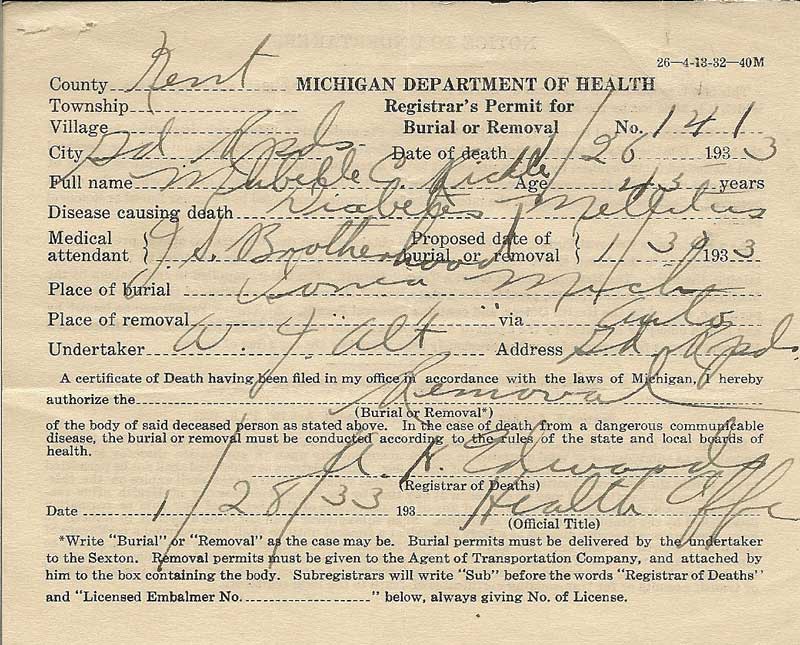 26—4-13-32—40M
County Kent MICHIGAN DEPARTMENT OF HEALTH
Township Registrar's Permit for
Village Burial or Removal No. 141
City Gd Rpds Date of death 1/26 1933
Full name Maybelle C. Age 43 years
Disease causing death Diabetes Mellitus
Medical attendant } J. S. Brotherhood Proposed date of burial or removal { 1/30 1933
Place of burial Ionia Mich
Place of removal " " via auto
Undertaker W. J. Alt Address Gd Rpds
A certificate of Death having been filed in my office in accordance with the laws of Michigan, I hereby
authorize the Removal
(Burial or Removal*)
of the body of said deceased person as stated above. In the case of death from a dangerous communicable
disease, the burial or removal must be conducted according to the rules of the state and local boards of
health.
A. H. Edwards
(Registrar of Deaths)
Date 1/28/33 193 Health Offc
(Official Title)
*Write "Burial" or "Removal" as the case may be. Burial permits must be delivered by the undertaker
to the Sexton. Removal permits must be given to the Agent of Transportation Company, and attached by
him to the box containing the body. Subregistrars will write "Sub" before the words "Registrar of Deaths"
and "Licensed Embalmer No. " below, always giving No. of License.